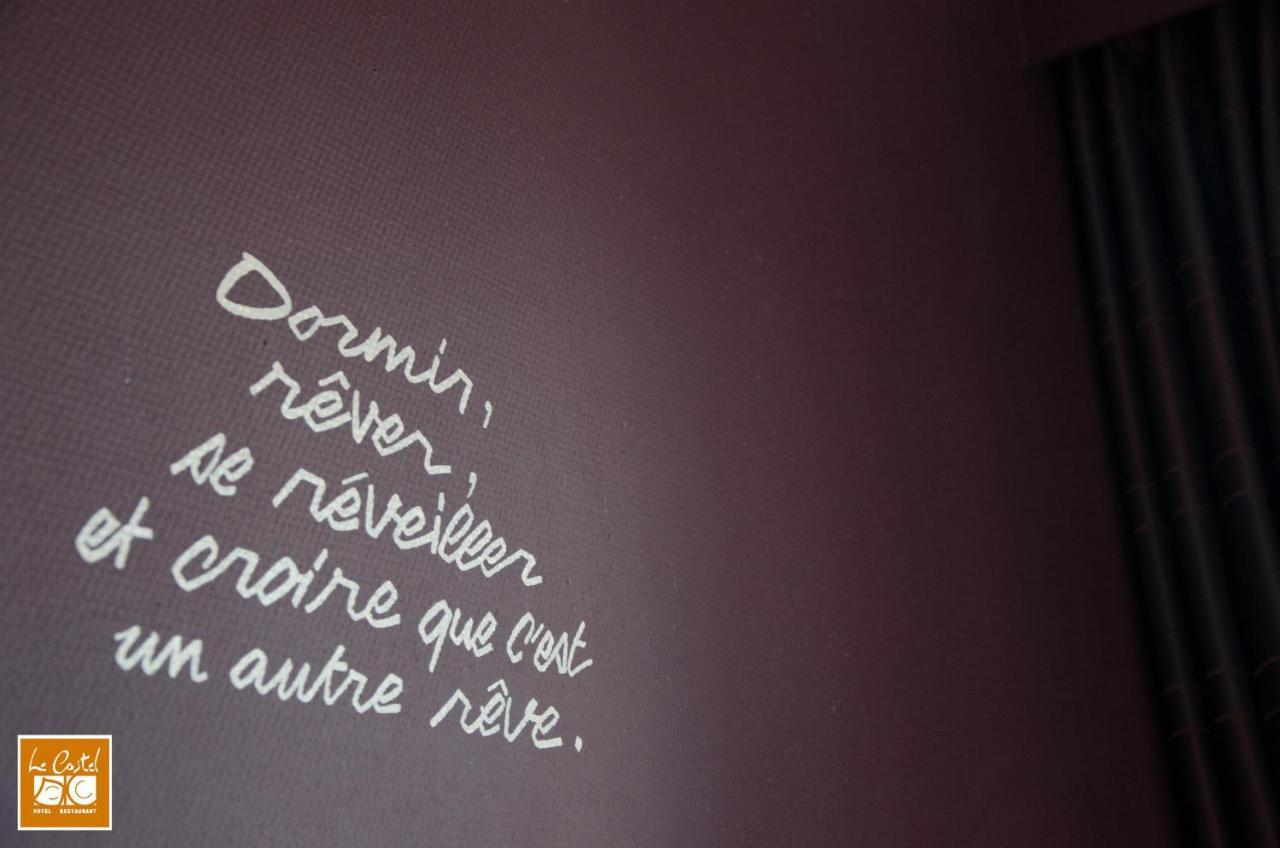 Dormir,
rêver,
se réveiller
et croire que c'est
un autre rêve.
Le Castel
HOTEL RESTAURANT